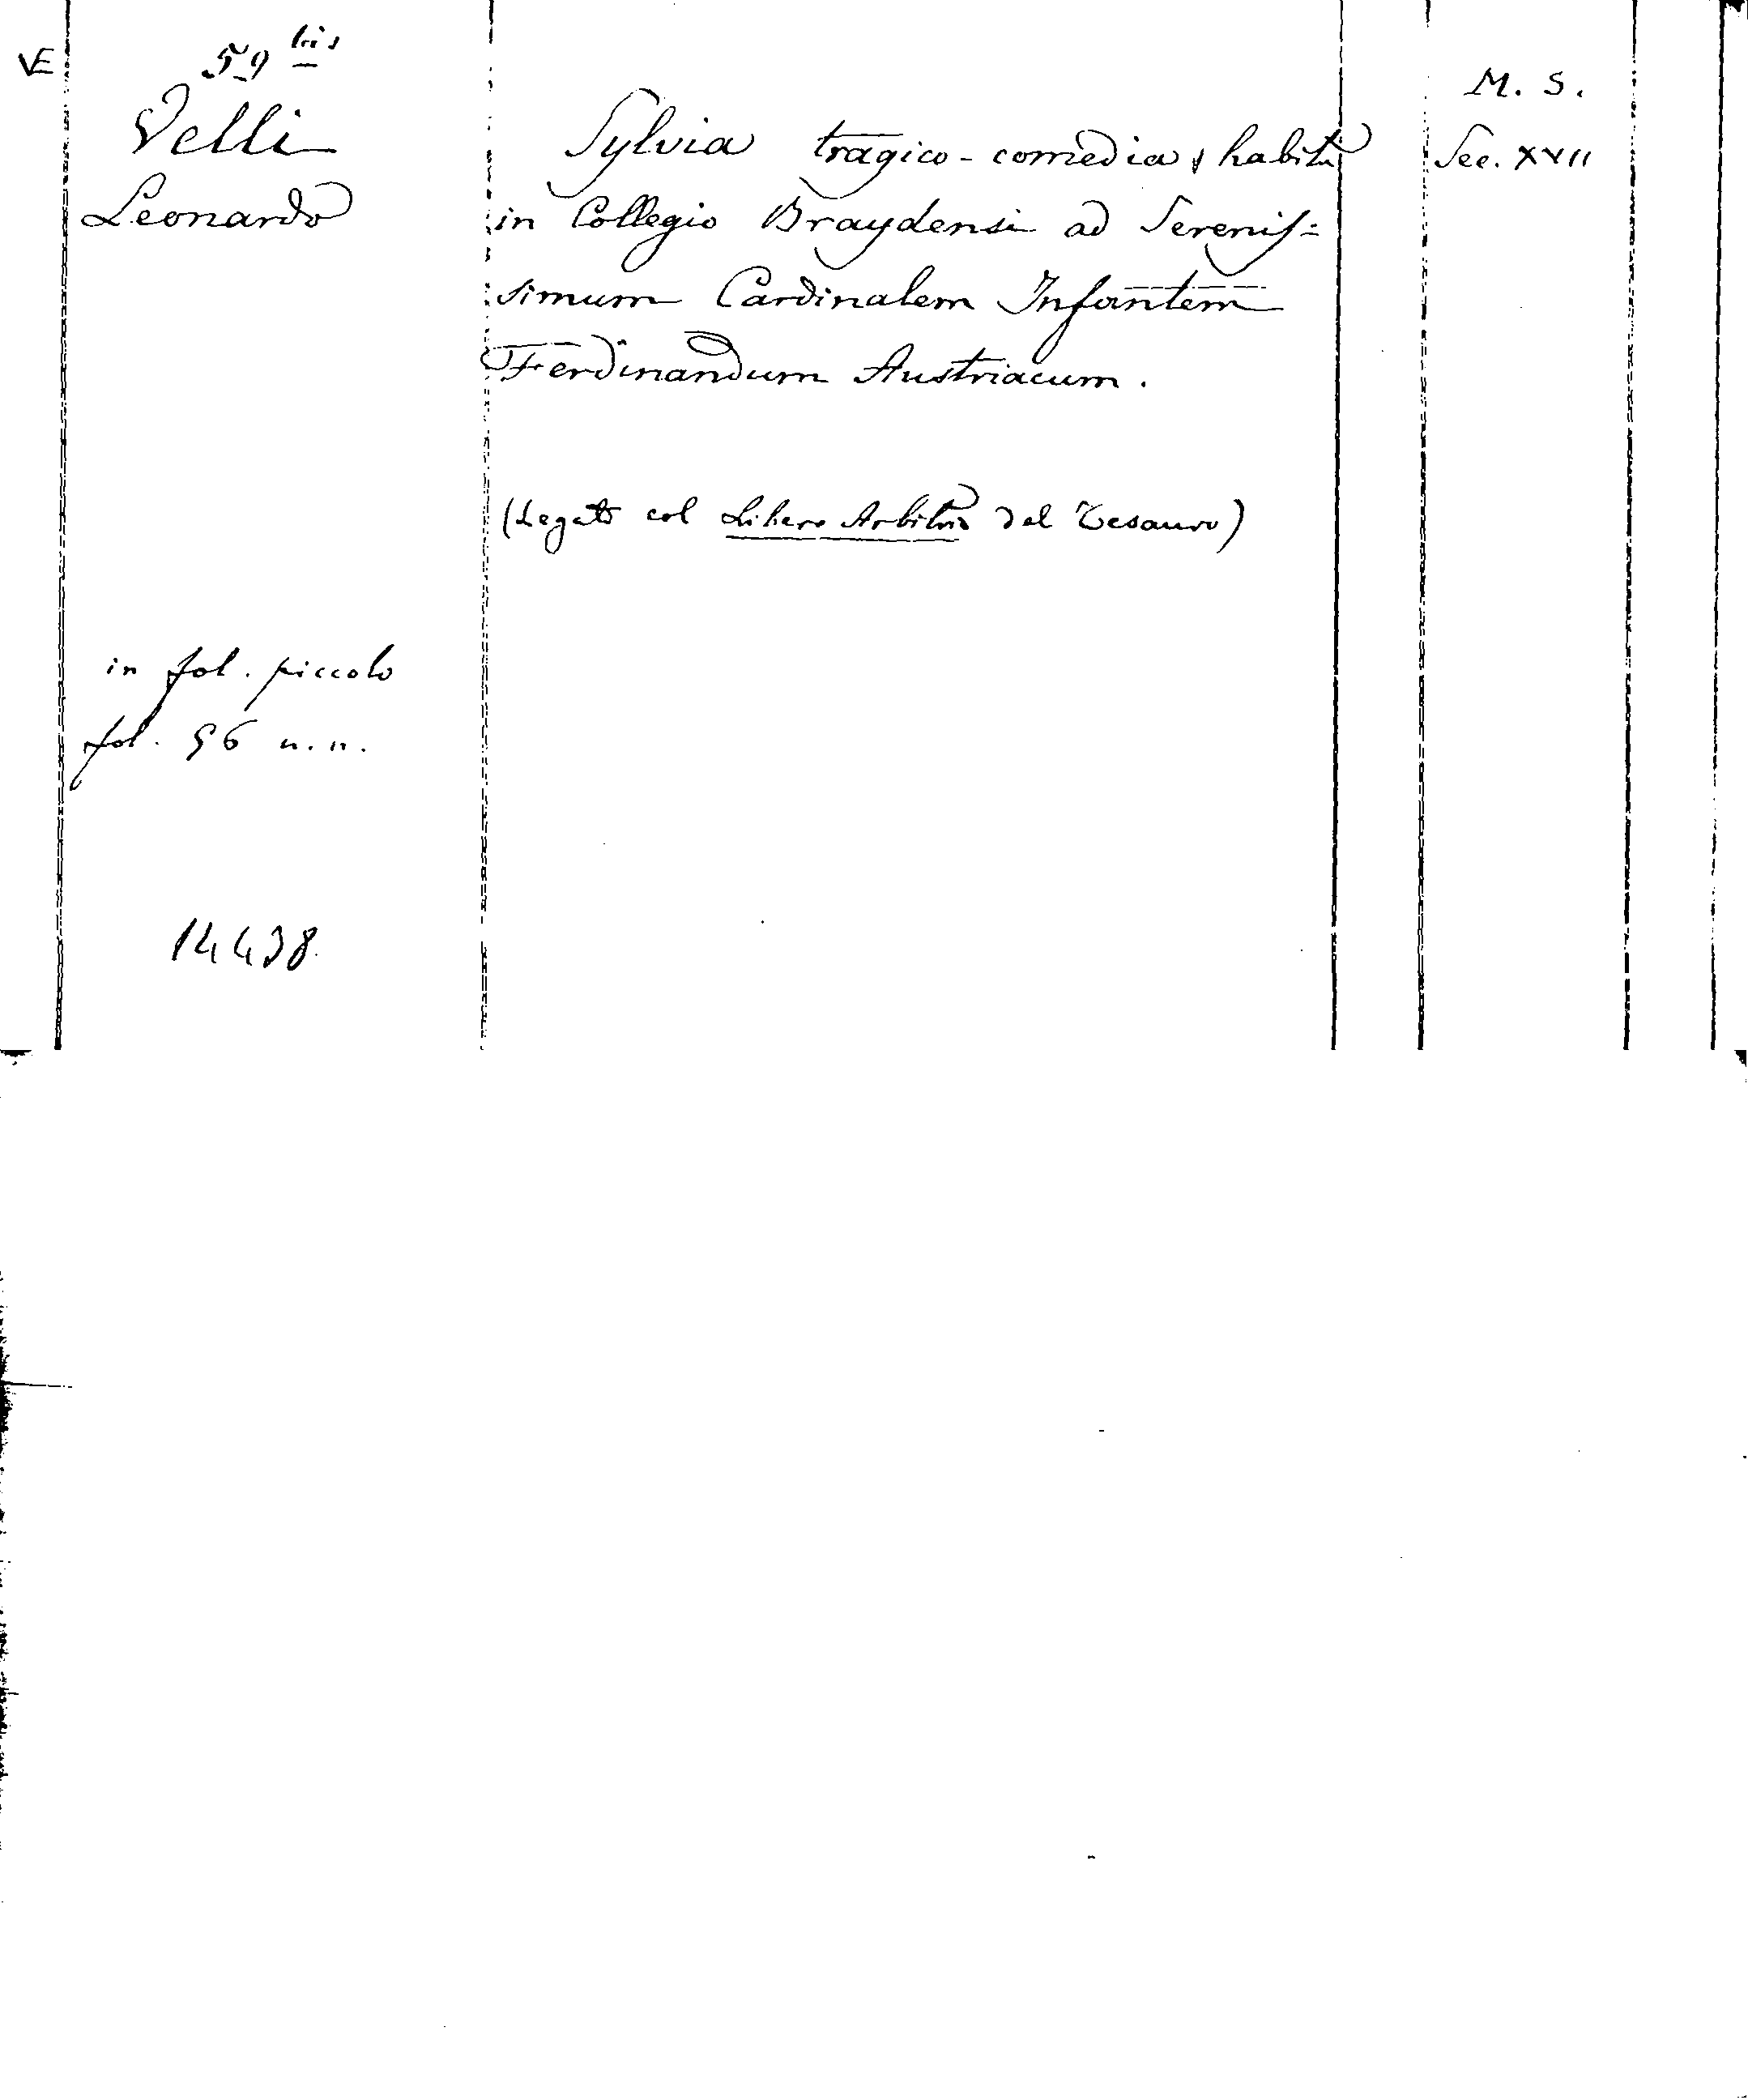 VE
59 bis
Velli
Leonardo
Sylvia tragico-comedia, habita
in Collegio Braydensi ad Serenis=
simum Cardinalem Infantem
Ferdinandum Austriacum.
(Legato col Libero Arbitrio del Tesauro)
M. S.
Sec. XVII
in fol. piccolo
fol. 56 n.n.
14438